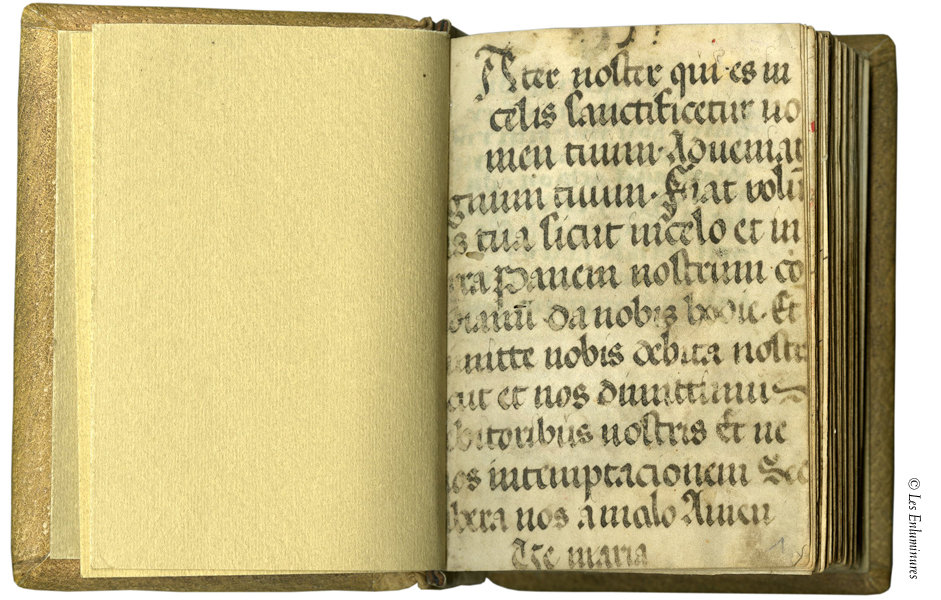 Ater noster qui es in
celis sanctificetur no
men tuum · Adveniat
gnum tuum · Fiat volū
is tua sicut in celo et in
rra Panem nostrum co
dianū da nobis hodie · Et
imitte nobis debita nostr
icut et nos dimittimus
ebitoribus nostris Et ne
nos in temptacionem Sed
ibera nos a malo Amen
Ave maria
1
© Les Enluminures